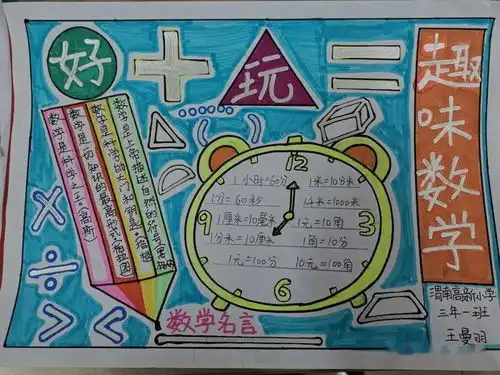 好 + 玩 =
趣味数学
数学是上帝描述自然的符号
数学是科学的大门和钥匙
数学是一切知识的最高形式
数学是科学之王。(高斯)
数学名言
12
3
6
9
1小时=60分
1米=10分米
1分=60秒
1千米=1000米
1厘米=10毫米
1元=10角
1分米=10厘米
1角=10分
1元=100分
10元=100角
× ÷ > <
渭南高新小学
三年一班
王曼羽